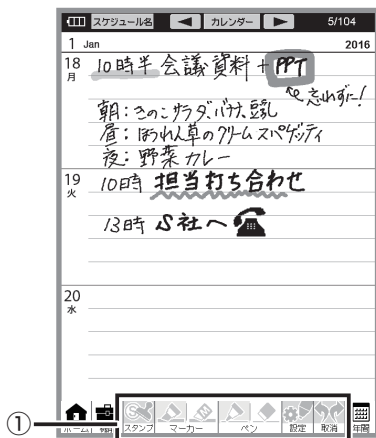 スケジュール名 カレンダー 5/104
1 Jan 2016
18 10時半 会議資料+PPT
月
忘れずに!
朝:きのこサラダ、バナナ、豆乳
昼:ほうれん草のクリームスパゲッティ
夜:野菜カレー
19 10時 担当打ち合わせ
火
13時 S社へ
20
水
ホーム スタンプ マーカー ペン 設定 取消 年間
①